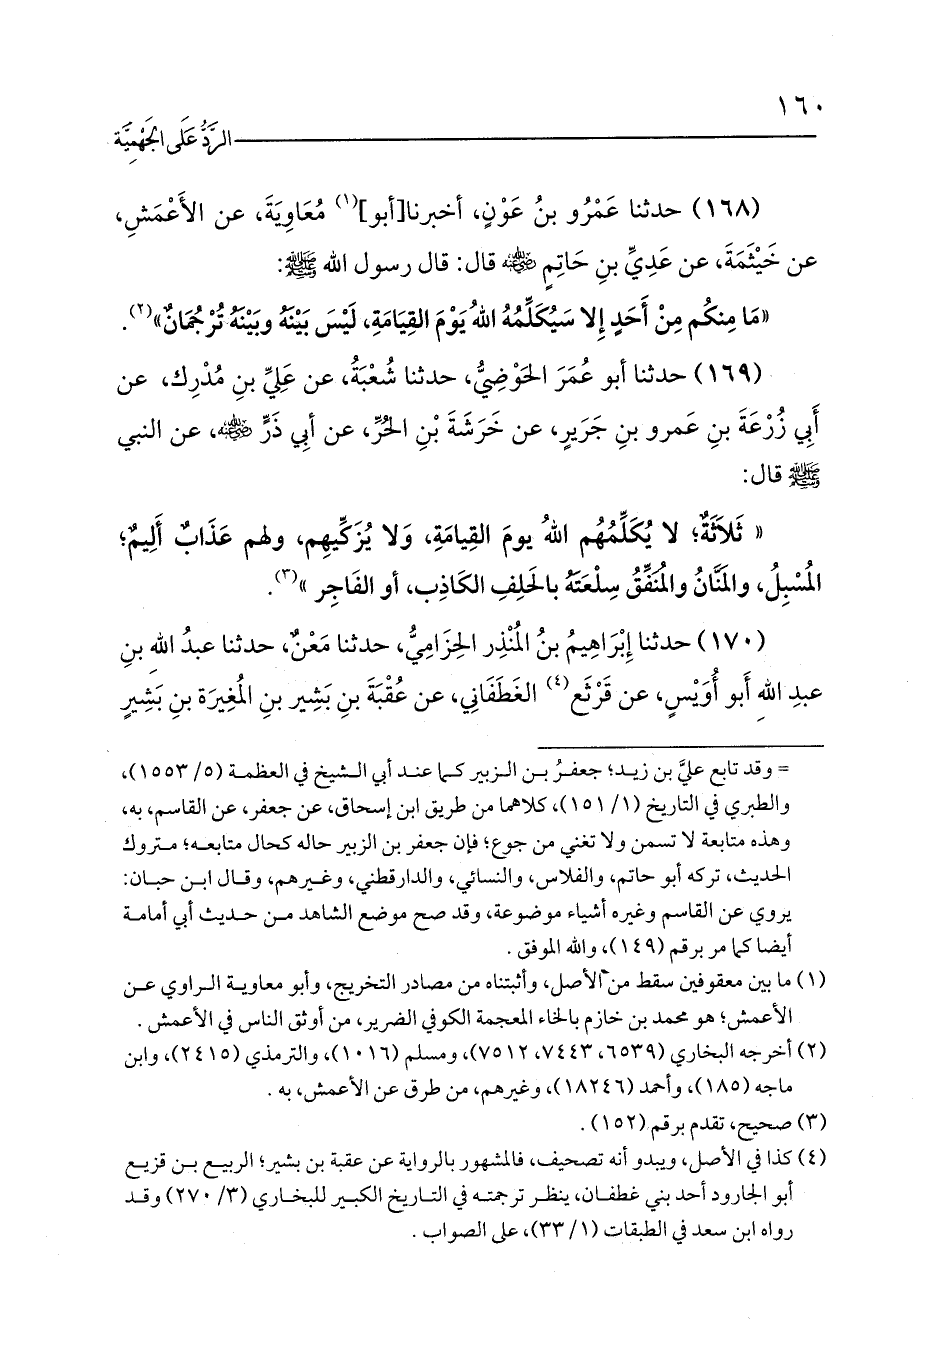 ١٦٠
الرَّدُّ عَلَى الجَهْمِيَّة
(١٦٨) حدثنا عَمْرُو بنُ عَوْنٍ، أخبرنا[أبو](١) مُعَاوِيَةَ، عن الأَعْمَشِ،
عن خَيْثَمَةَ، عن عَدِيِّ بنِ حَاتِمٍ رضي الله عنه قال: قال رسول الله ﷺ:
«مَا مِنكُم مِنْ أَحَدٍ إِلا سَيُكَلِّمُهُ اللهُ يَوْمَ القِيَامَةِ، لَيْسَ بَيْنَهُ وبَيْنَهُ تُرْجُمَانٌ»(٢).
(١٦٩) حدثنا أبو عُمَرَ الحَوْضِيُّ، حدثنا شُعْبَةُ، عن عَلِيِّ بنِ مُدْرِك، عن
أَبِي زُرْعَةَ بنِ عَمرو بنِ جَرَيرٍ، عن خَرَشَةَ بْنِ الحُرِّ، عن أَبِي ذَرٍّ رضي الله عنه، عن النبي
ﷺ قال:
« ثَلاَثَةٌ؛ لا يُكَلِّمُهُم اللهُ يومَ القِيَامَةِ، وَلا يُزَكِّيهِم، ولهم عَذَابٌ أَلِيمٌ؛
المُسْبِلُ، والمَنَّانُ والمُنَفِّقُ سِلْعَتَهُ بالحَلِفِ الكَاذِب، أو الفَاجِر »(٣).
(١٧٠) حدثنا إِبْرَاهِيمُ بنُ المُنْذِر الحِزَامِيُّ، حدثنا مَعْنٌ، حدثنا عبدُ اللهِ بنِ
عبدِ اللهِ أَبو أُوَيْسٍ، عن قَرْثَع(٤) الغَطَفَاني، عن عُقْبَةَ بنِ بَشِير بنِ المُغِيرَة بنِ بَشِيرٍ
= وقد تابع عليَّ بن زيد؛ جعفرُ بن الزبير كما عند أبي الشيخ في العظمة (٥/ ١٥٥٣)،
والطبري في التاريخ (١/ ١٥١)، كلاهما من طريق ابن إسحاق، عن جعفر، عن القاسم، به،
وهذه متابعة لا تسمن ولا تغني من جوع؛ فإن جعفر بن الزبير حاله كحال متابعه؛ متروك
الحديث، تركه أبو حاتم، والفلاس، والنسائي، والدارقطني، وغيرهم، وقال ابن حبان:
يروي عن القاسم وغيره أشياء موضوعة، وقد صح موضع الشاهد من حديث أبي أمامة
أيضا كما مر برقم (١٤٩)، والله الموفق .
(١) ما بين معقوفين سقط من الأصل، وأثبتناه من مصادر التخريج، وأبو معاوية الراوي عن
الأعمش؛ هو محمد بن خازم بالخاء المعجمة الكوفي الضرير، من أوثق الناس في الأعمش .
(٢) أخرجه البخاري (٦٥٣٩، ٧٤٤٣، ٧٥١٢)، ومسلم (١٠١٦)، والترمذي (٢٤١٥)، وابن
ماجه (١٨٥)، وأحمد (١٨٢٤٦)، وغيرهم، من طرق عن الأعمش، به .
(٣) صحيح، تقدم برقم (١٥٢) .
(٤) كذا في الأصل، ويبدو أنه تصحيف، فالمشهور بالرواية عن عقبة بن بشير؛ الربيع بن قزيع
أبو الجارود أحد بني غطفان، ينظر ترجمته في التاريخ الكبير للبخاري (٣/ ٢٧٠) وقد
رواه ابن سعد في الطبقات (١/ ٣٣)، على الصواب .